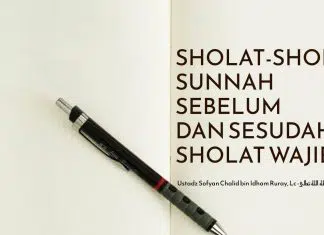 SHOLAT-SHOL
SUNNAH
SEBELUM
DAN SESUDAH
SHOLAT WAJIB
Ustadz Sofyan Chalid bin Idham Ruray, Lc